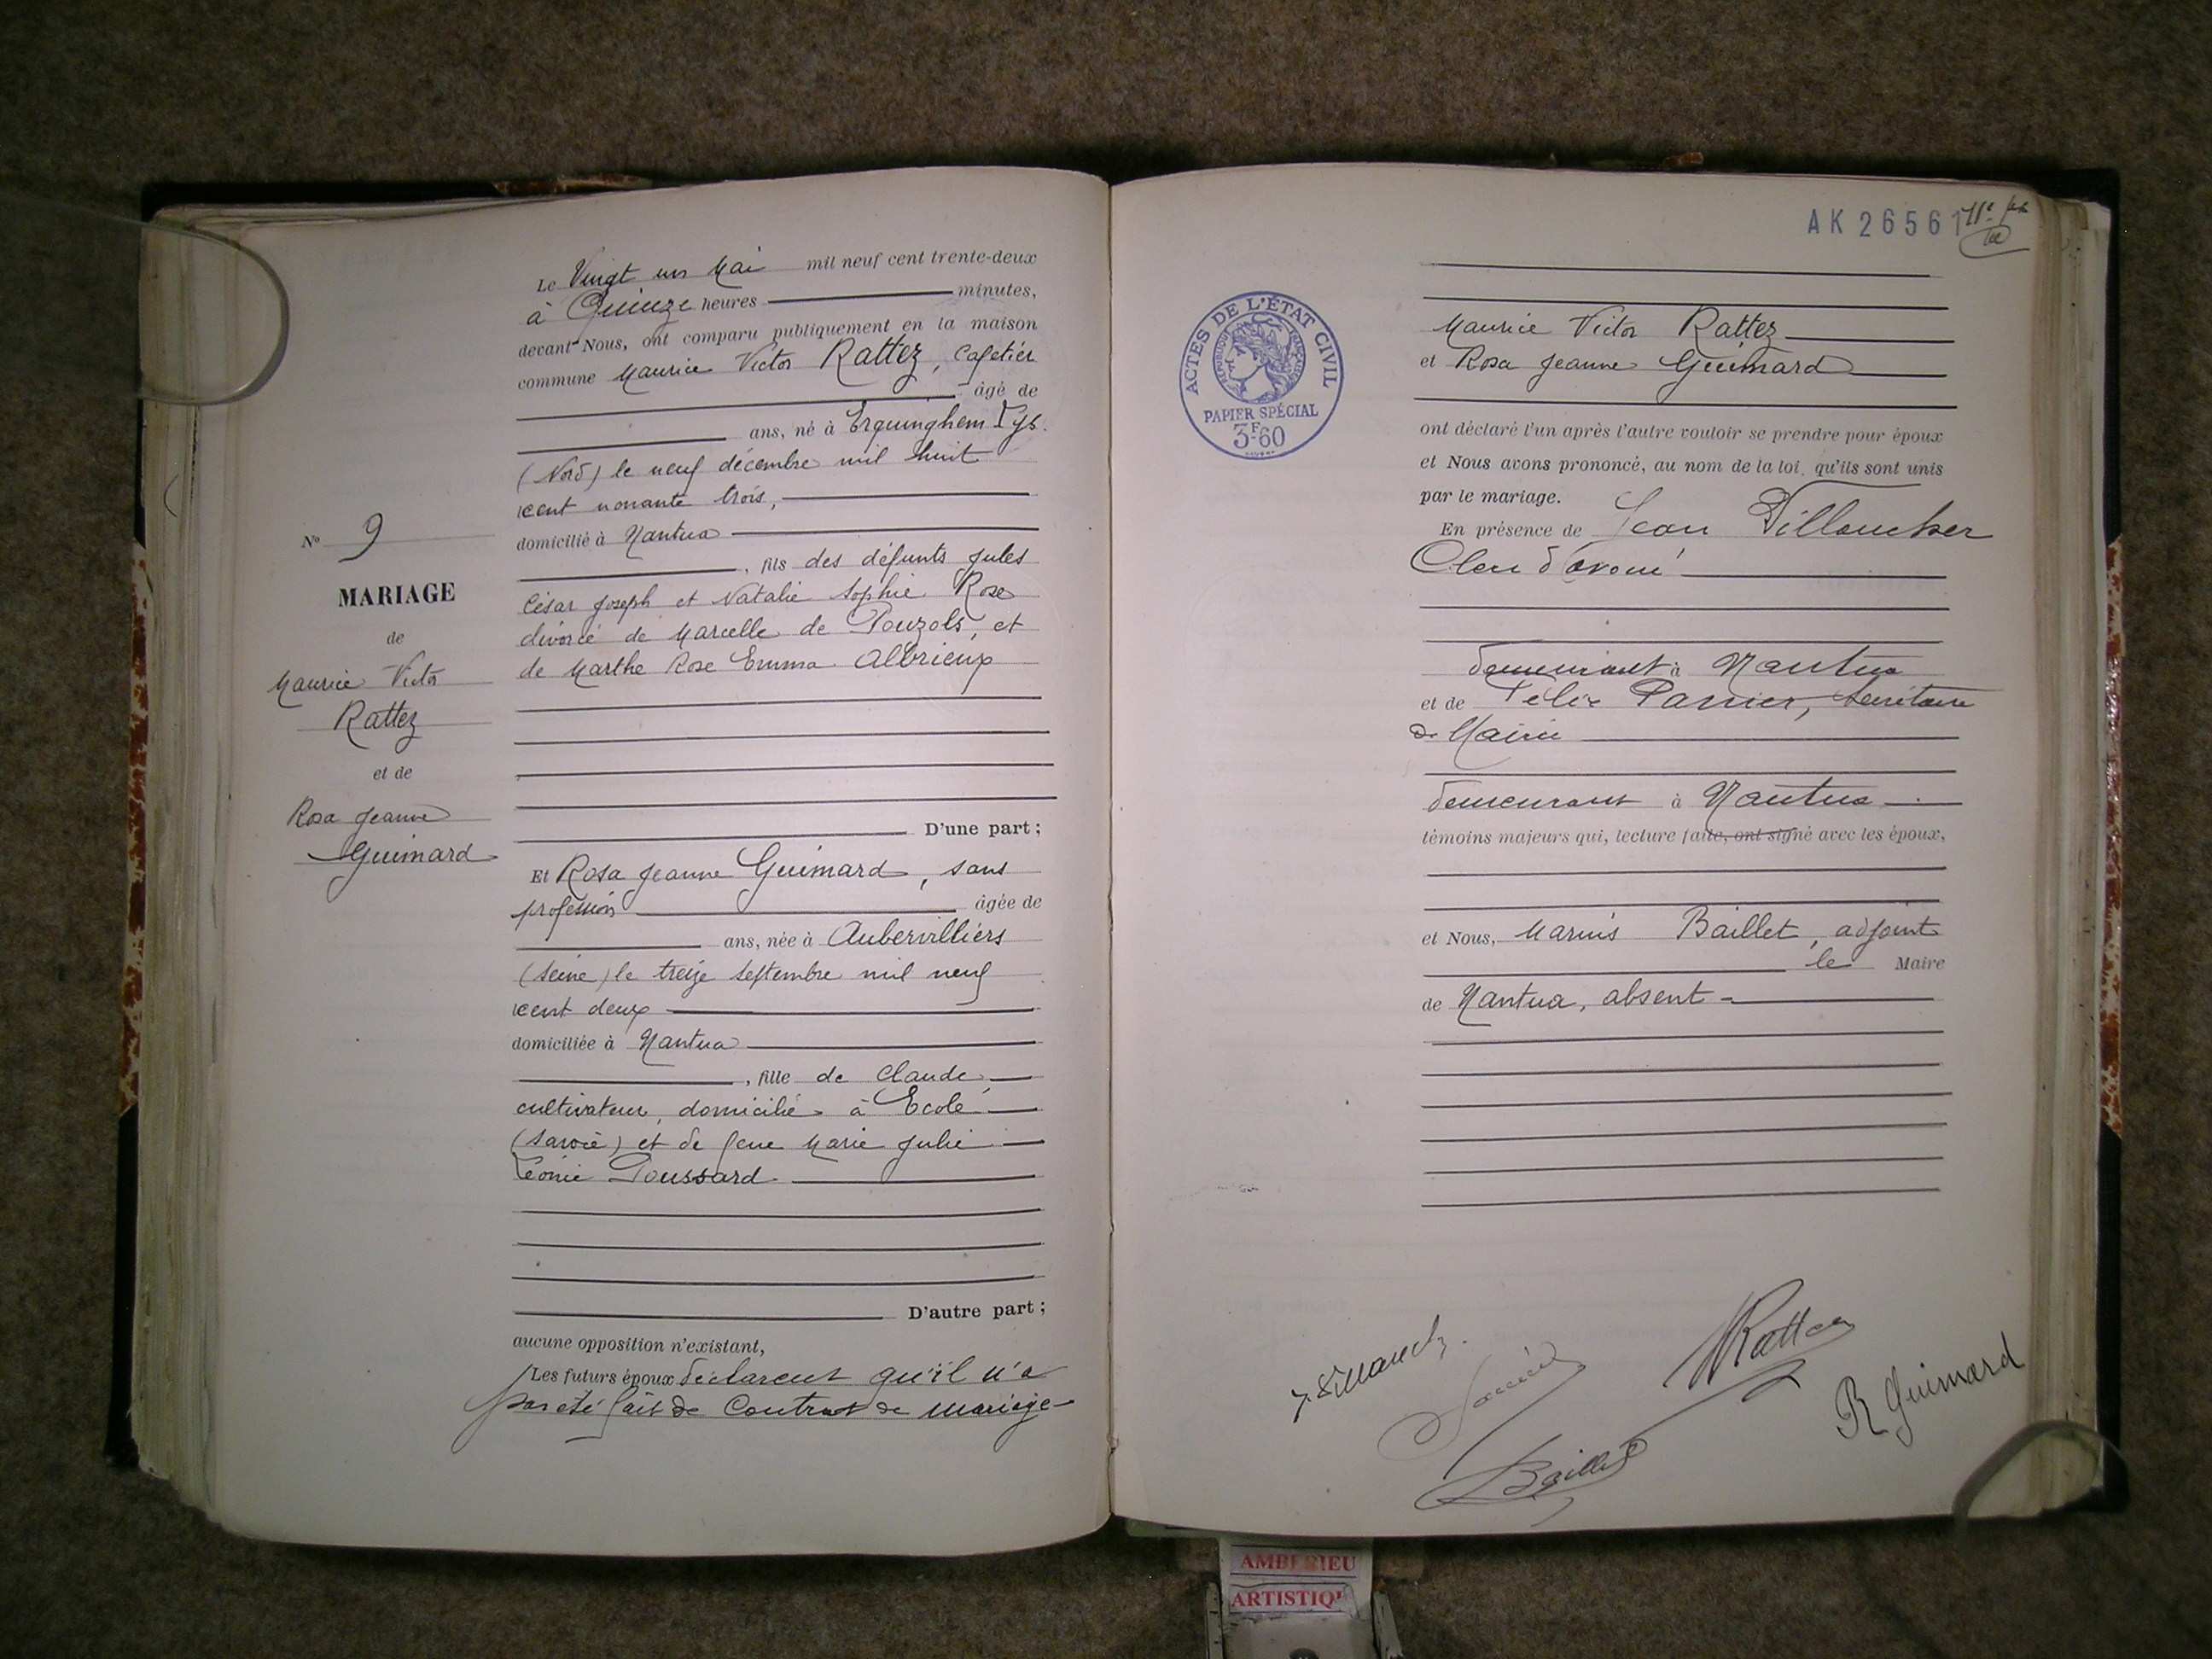 Le Vingt un Mai mil neuf cent trente-deux
à Quinze heures minutes,
devant Nous, ont comparu publiquement en la maison
commune Maurice Victor Rattez, Cafetier
âgé de
ans, né à Erquinghem Lys.
(Nord) le neuf décembre mil huit
cent nonante trois,
domicilié à Nantua
, fils des défunts Jules
César Joseph et Natalie Sophie Rose
divorcé de Marcelle de Pouzols, et
de Marthe Rose Emma Albrieux
D'une part;
Et Rosa Jeanne Guimard, sans
profession âgée de
ans, née à Aubervilliers
(Seine) le treize Septembre mil neuf
cent deux
domiciliée à Nantua
, fille de Claude,
cultivateur, domicilié à Ecole
(Savoie) et de feue Marie Julie
Léonie Poussard
D'autre part;
aucune opposition n'existant,
Les futurs époux déclarent qu'il n'a
pas été fait de Contrat de mariage
N° 9
MARIAGE
de
Maurice Victor
Rattez
et de
Rosa Jeanne
Guimard
AK 26561
ACTES DE L'ÉTAT CIVIL
RÉPUBLIQUE FRANÇAISE
PAPIER SPÉCIAL
3F60
Maurice Victor Rattez
et Rosa Jeanne Guimard
ont déclaré l'un après l'autre vouloir se prendre pour époux
et Nous avons prononcé, au nom de la loi, qu'ils sont unis
par le mariage.
En présence de Jean
Clerc d'avoué
demeurant à Nantua
et de Félix Secrétaire
de Mairie
demeurant à Nantua
témoins majeurs qui, lecture faite, ont signé avec les époux,
et Nous, Marius Baillet, adjoint
le Maire
de Nantua, absent
Rattez
R Guimard
Baillet
AMBERIEU
ARTISTIQU